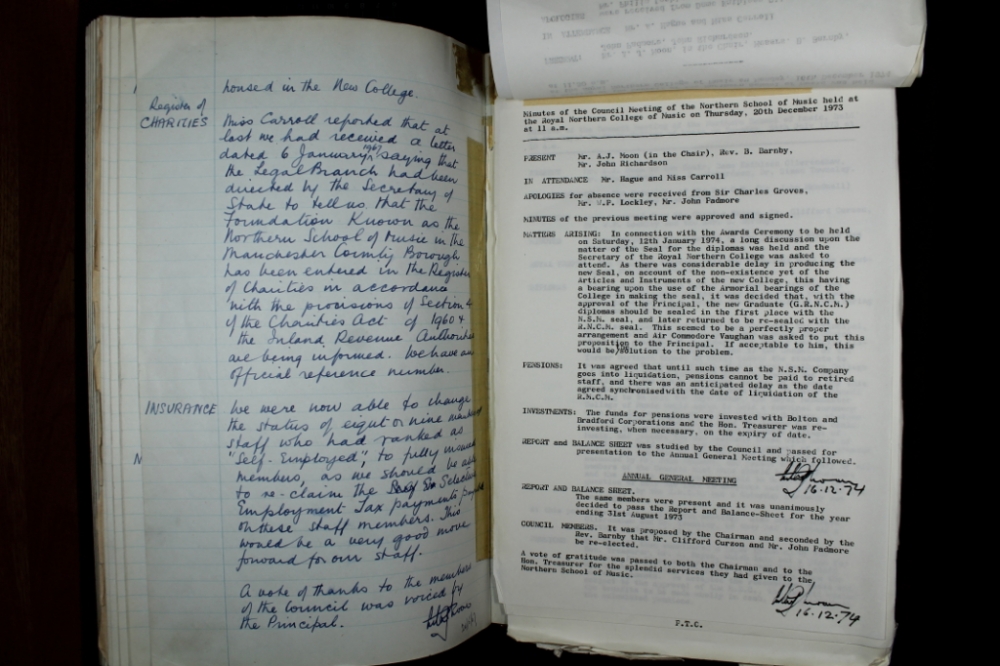 housed in the New College.
Register of
CHARITIES
Miss Carroll reported that at
last we had received a letter
dated 6 January 1967, saying that
the Legal Branch had been
directed by the Secretary of
State to tell us that the
Foundation Known as the
Northern School of Music in the
Manchester County Borough
has been entered in the Register
of Charities in accordance
with the provisions of Section 4
of the Charities Act of 1960 &
the Inland Revenue Authorities
are being informed. We have an
official reference number.
INSURANCE
We were now able to change
the status of eight or nine members
staff who had ranked as
"Self-Employed", to fully insured
members, as we should be able
to re-claim the Selective
Employment Tax payments
on these staff members. This
would be a very good move
forward for our staff.
A vote of thanks to the members
of the Council was voiced by
the Principal.
Minutes of the Council Meeting of the Northern School of Music held at
the Royal Northern College of Music on Thursday, 20th December 1973
at 11 a.m.
PRESENT Mr. A.J. Moon (in the Chair), Rev. B. Barnby,
Mr. John Richardson
IN ATTENDANCE Mr. Hague and Miss Carroll
APOLOGIES for absence were received from Sir Charles Groves,
Mr. W.P. Lockley, Mr. John Padmore
MINUTES of the previous meeting were approved and signed.
MATTERS ARISING: In connection with the Awards Ceremony to be held
on Saturday, 12th January 1974, a long discussion upon the
matter of the Seal for the diplomas was held and the
Secretary of the Royal Northern College was asked to
attend. As there was considerable delay in producing the
new Seal, on account of the non-existence yet of the
Articles and Instruments of the new College, this having
a bearing upon the use of the Armorial bearings of the
College in making the seal, it was decided that, with the
approval of the Principal, the new Graduate (G.R.N.C.M.)
diplomas should be sealed in the first place with the
N.S.M. seal, and later returned to be re-sealed with the
R.N.C.M. seal. This seemed to be a perfectly proper
arrangement and Air Commodore Vaughan was asked to put this
proposition to the Principal. If acceptable to him, this
would be solution to the problem.
PENSIONS: It was agreed that until such time as the N.S.M. Company
goes into liquidation, pensions cannot be paid to retired
staff, and there was an anticipated delay as the date
agreed synchronised with the date of liquidation of the
R.M.C.M.
INVESTMENTS: The funds for pensions were invested with Bolton and
Bradford Corporations and the Hon. Treasurer was re-
investing, when necessary, on the expiry of date.
REPORT and BALANCE SHEET was studied by the Council and passed for
presentation to the Annual General Meeting which followed.
16.12.74
ANNUAL GENERAL MEETING
REPORT AND BALANCE SHEET.
The same members were present and it was unanimously
decided to pass the Report and Balance-Sheet for the year
ending 31st August 1973
COUNCIL MEMBERS. It was proposed by the Chairman and seconded by the
Rev. Barnby that Mr. Clifford Curzon and Mr. John Padmore
be re-elected.
A vote of gratitude was passed to both the Chairman and to the
Hon. Treasurer for the splendid services they had given to the
Northern School of Music.
16.12.74
P.T.O.